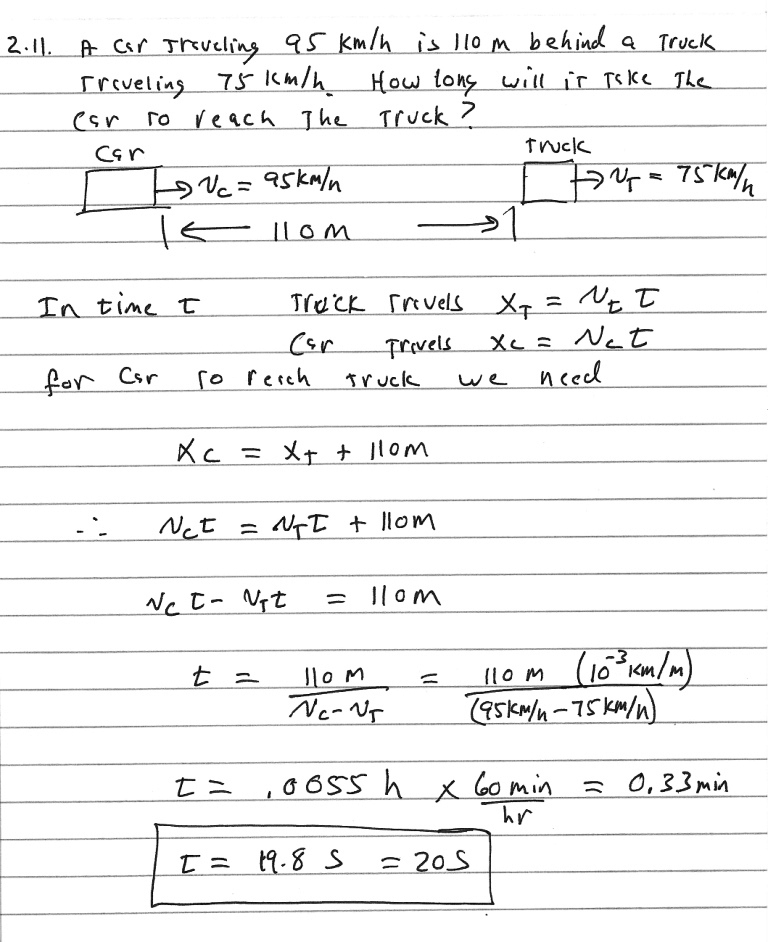 2.11. A car traveling 95 km/h is 110 m behind a truck
traveling 75 km/h. How long will it take the
car to reach the truck?
Car truck
→ Vc = 95 km/h → VT = 75 km/h
|← 110 m →|
In time t Truck travels XT = Vt t
Car travels Xc = Vc t
for car to reach truck we need
Xc = XT + 110m
∴ Vct = VTt + 110m
Vc t - VTt = 110m
t = 110 m / (Vc - VT) = 110 m (10⁻³ km/m) / (95km/h - 75 km/h)
t = .0055 h × 60 min / hr = 0.33 min
t = 19.8 s = 20s